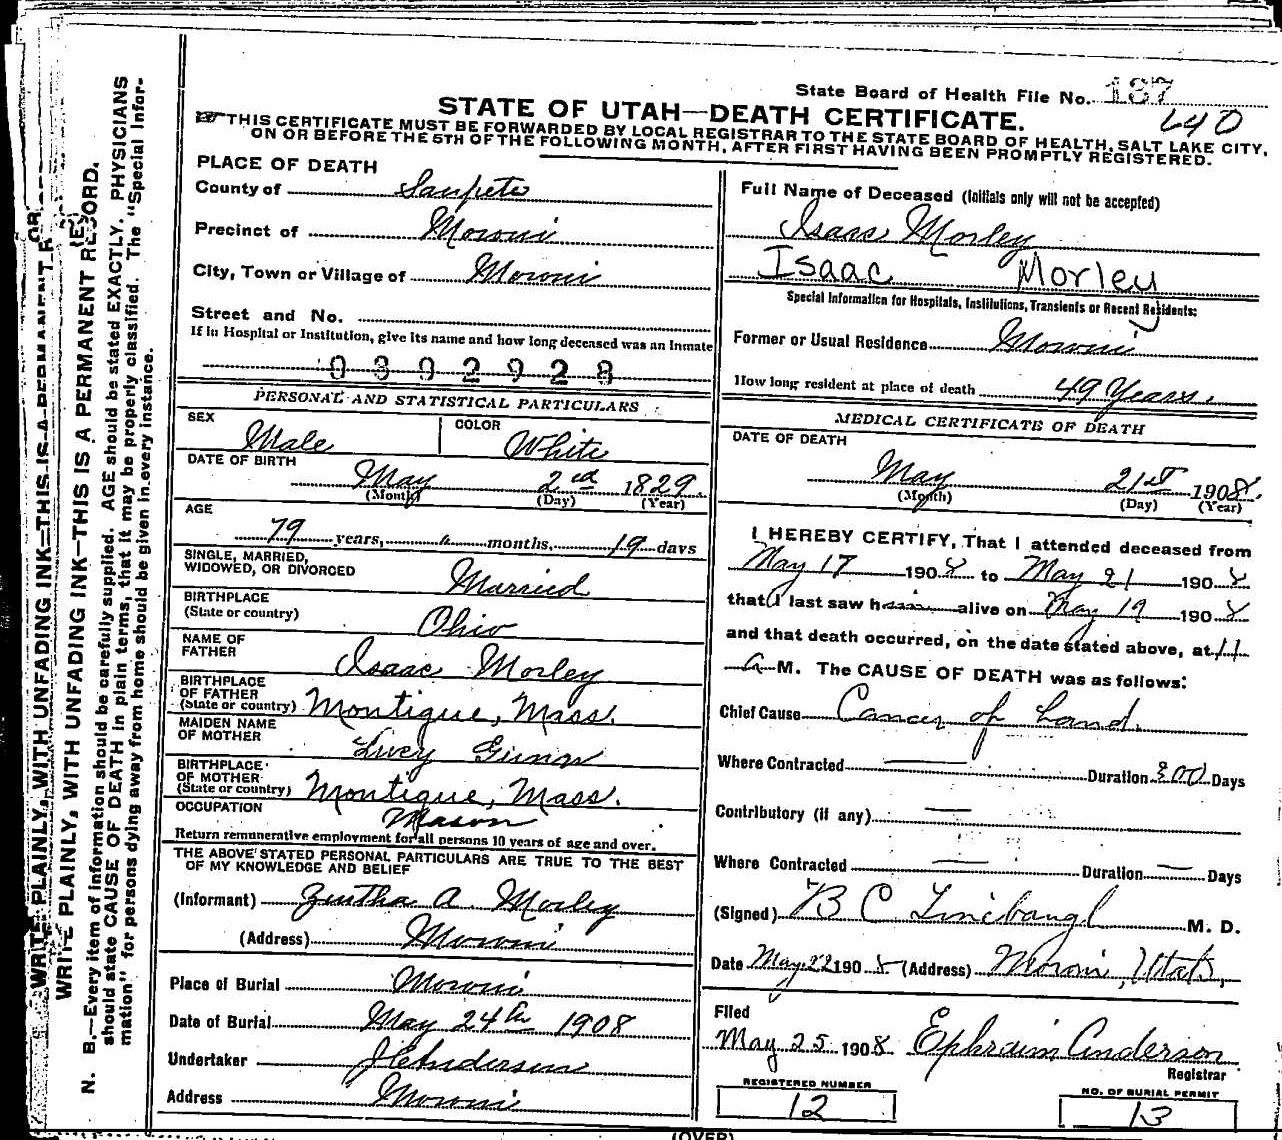 State Board of Health File No. 137
L40
STATE OF UTAH—DEATH CERTIFICATE.
THIS CERTIFICATE MUST BE FORWARDED BY LOCAL REGISTRAR TO THE STATE BOARD OF HEALTH, SALT LAKE CITY,
ON OR BEFORE THE 5TH OF THE FOLLOWING MONTH, AFTER FIRST HAVING BEEN PROMPTLY REGISTERED.
PLACE OF DEATH
County of Sanpete
Precinct of Moroni
City, Town or Village of Moroni
Street and No.
If in Hospital or Institution, give its name and how long deceased was an Inmate
0302928
PERSONAL AND STATISTICAL PARTICULARS
SEX Male
COLOR White
DATE OF BIRTH May 2nd 1829.
(Month) (Day) (Year)
AGE
79 years, " months, 19 days
SINGLE, MARRIED,
WIDOWED, OR DIVORCED Married
BIRTHPLACE
(State or country) Ohio
NAME OF
FATHER Isaac Morley
BIRTHPLACE
OF FATHER
(State or country) Montigue, Mass.
MAIDEN NAME
OF MOTHER Lucy Gunn
BIRTHPLACE
OF MOTHER
(State or country) Montigue, Mass.
OCCUPATION Mason
Return remunerative employment for all persons 10 years of age and over.
THE ABOVE STATED PERSONAL PARTICULARS ARE TRUE TO THE BEST
OF MY KNOWLEDGE AND BELIEF
(Informant) A. Morley
(Address) Moroni
Place of Burial Moroni
Date of Burial May 24th 1908
Undertaker
Address Moroni
Full Name of Deceased (Initials only will not be accepted)
Isaac Morley
Isaac Morley
Special Information for Hospitals, Institutions, Transients or Recent Residents:
Former or Usual Residence Moroni
How long resident at place of death 49 Years.
MEDICAL CERTIFICATE OF DEATH
DATE OF DEATH
May 21st 1908.
(Month) (Day) (Year)
I HEREBY CERTIFY, That I attended deceased from
May 17 1908 to May 21 1908
that I last saw h alive on May 19 1908
and that death occurred, on the date stated above, at 11
a M. The CAUSE OF DEATH was as follows:
Chief Cause Cancer of
Where Contracted — Duration 300 Days
Contributory (if any) —
Where Contracted — Duration — Days
(Signed) B C M. D.
Date May 22 1908 (Address) Moroni, Utah,
Filed
May 25 1908 Ephraim Anderson
Registrar
REGISTERED NUMBER
12
NO. OF BURIAL PERMIT
13
(OVER)
WRITE PLAINLY, WITH UNFADING INK—THIS IS A PERMANENT R
WRITE PLAINLY, WITH UNFADING INK—THIS IS A PERMANENT RECORD.
N. B.—Every item of information should be carefully supplied. AGE should be stated EXACTLY. PHYSICIANS
should state CAUSE OF DEATH in plain terms, that it may be properly classified. The "Special Infor-
mation" for persons dying away from home should be given in every instance.